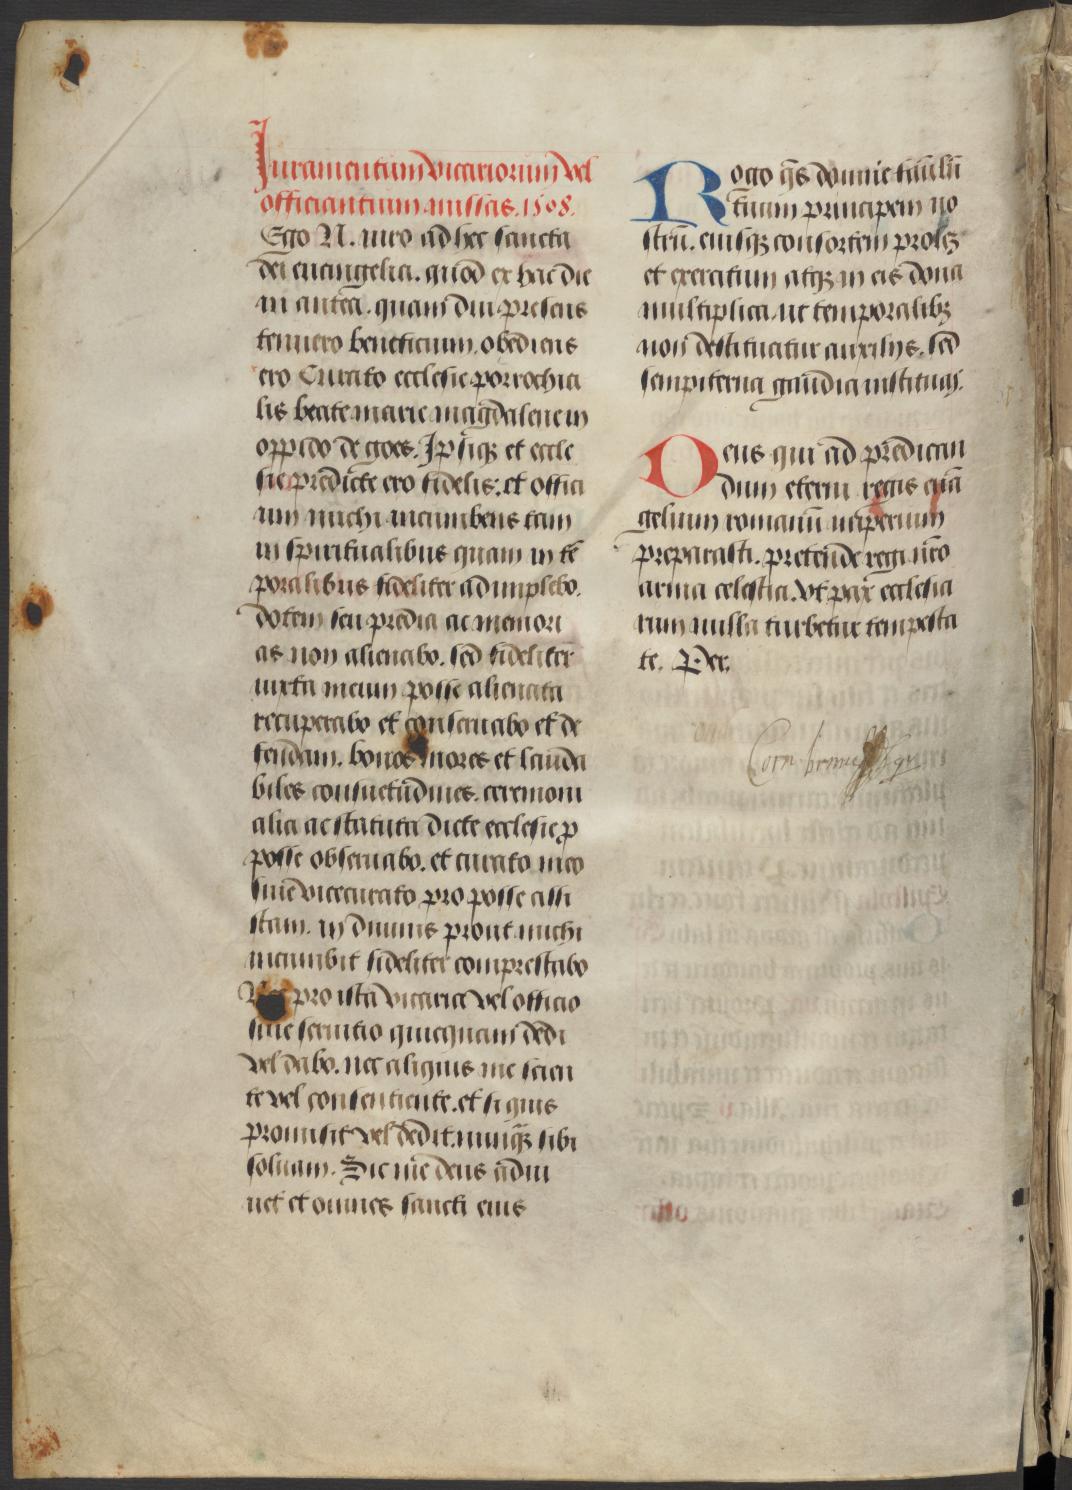 Juramentum vicariorum vel
officiantium missas. 1508.
Ego N. iuro ad hec sancta
dei euangelia. quod ex hac die
in antea. quam diu presens
tenuero beneficium. obediens
ero Curato ecclesie porrochia
lis beate marie magdalene in
oppido de goes. Ipsiqꝫ et eccle
sie predicte ero fidelis. et offici
um michi incumbens tam
in spiritualibus quam in tē
poralibus fideliter adimplebo.
dotem seu predia ac memori
as non alienabo. sed fideliter
iuxta meum posse alienata
recuperabo et conseruabo et de
fendam. bonos mores et lauda
biles consuetudines. ceremoni
alia ac statuta dicte ecclesie p
posse obseruabo. et curato meo
siue vicecurato pro posse assi
stam. in diuinis prout michi
incumbit fideliter comprestabo
pro ista vicaria vel officio
siue seruitio quicquam dedi
vel dabo. nec aliquis me scien
te vel consentiente. et si quis
promisit vel dedit. nunqꝫ sibi
soluam. Sic me deus adiu
uet et omnes sancti eius
Rogo q̄s domine famulū
tuum principem no
strū. eiusqꝫ consortem prolēqꝫ
et exercitum atqꝫ in eis dona
multiplica. ut temporalibꝫ
non destituatur auxilijs. sed
sempiterna gaudia
Deus qui ad predican
dum eterni regis euā
gelium romanū imperium
preparasti. pretende regi nr̄o
arma celestia. vt pax ecclesia
rum nulla turbetur tempesta
te. Per.
Corn